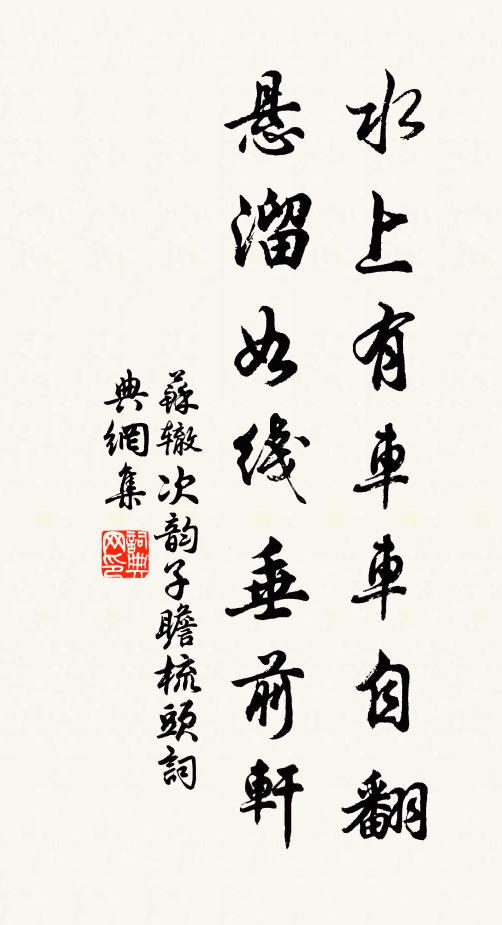 水上有車車自翻
悬溜如线垂前軒
蘇辙次韵子瞻梳頭詞
典網集
詞典网印